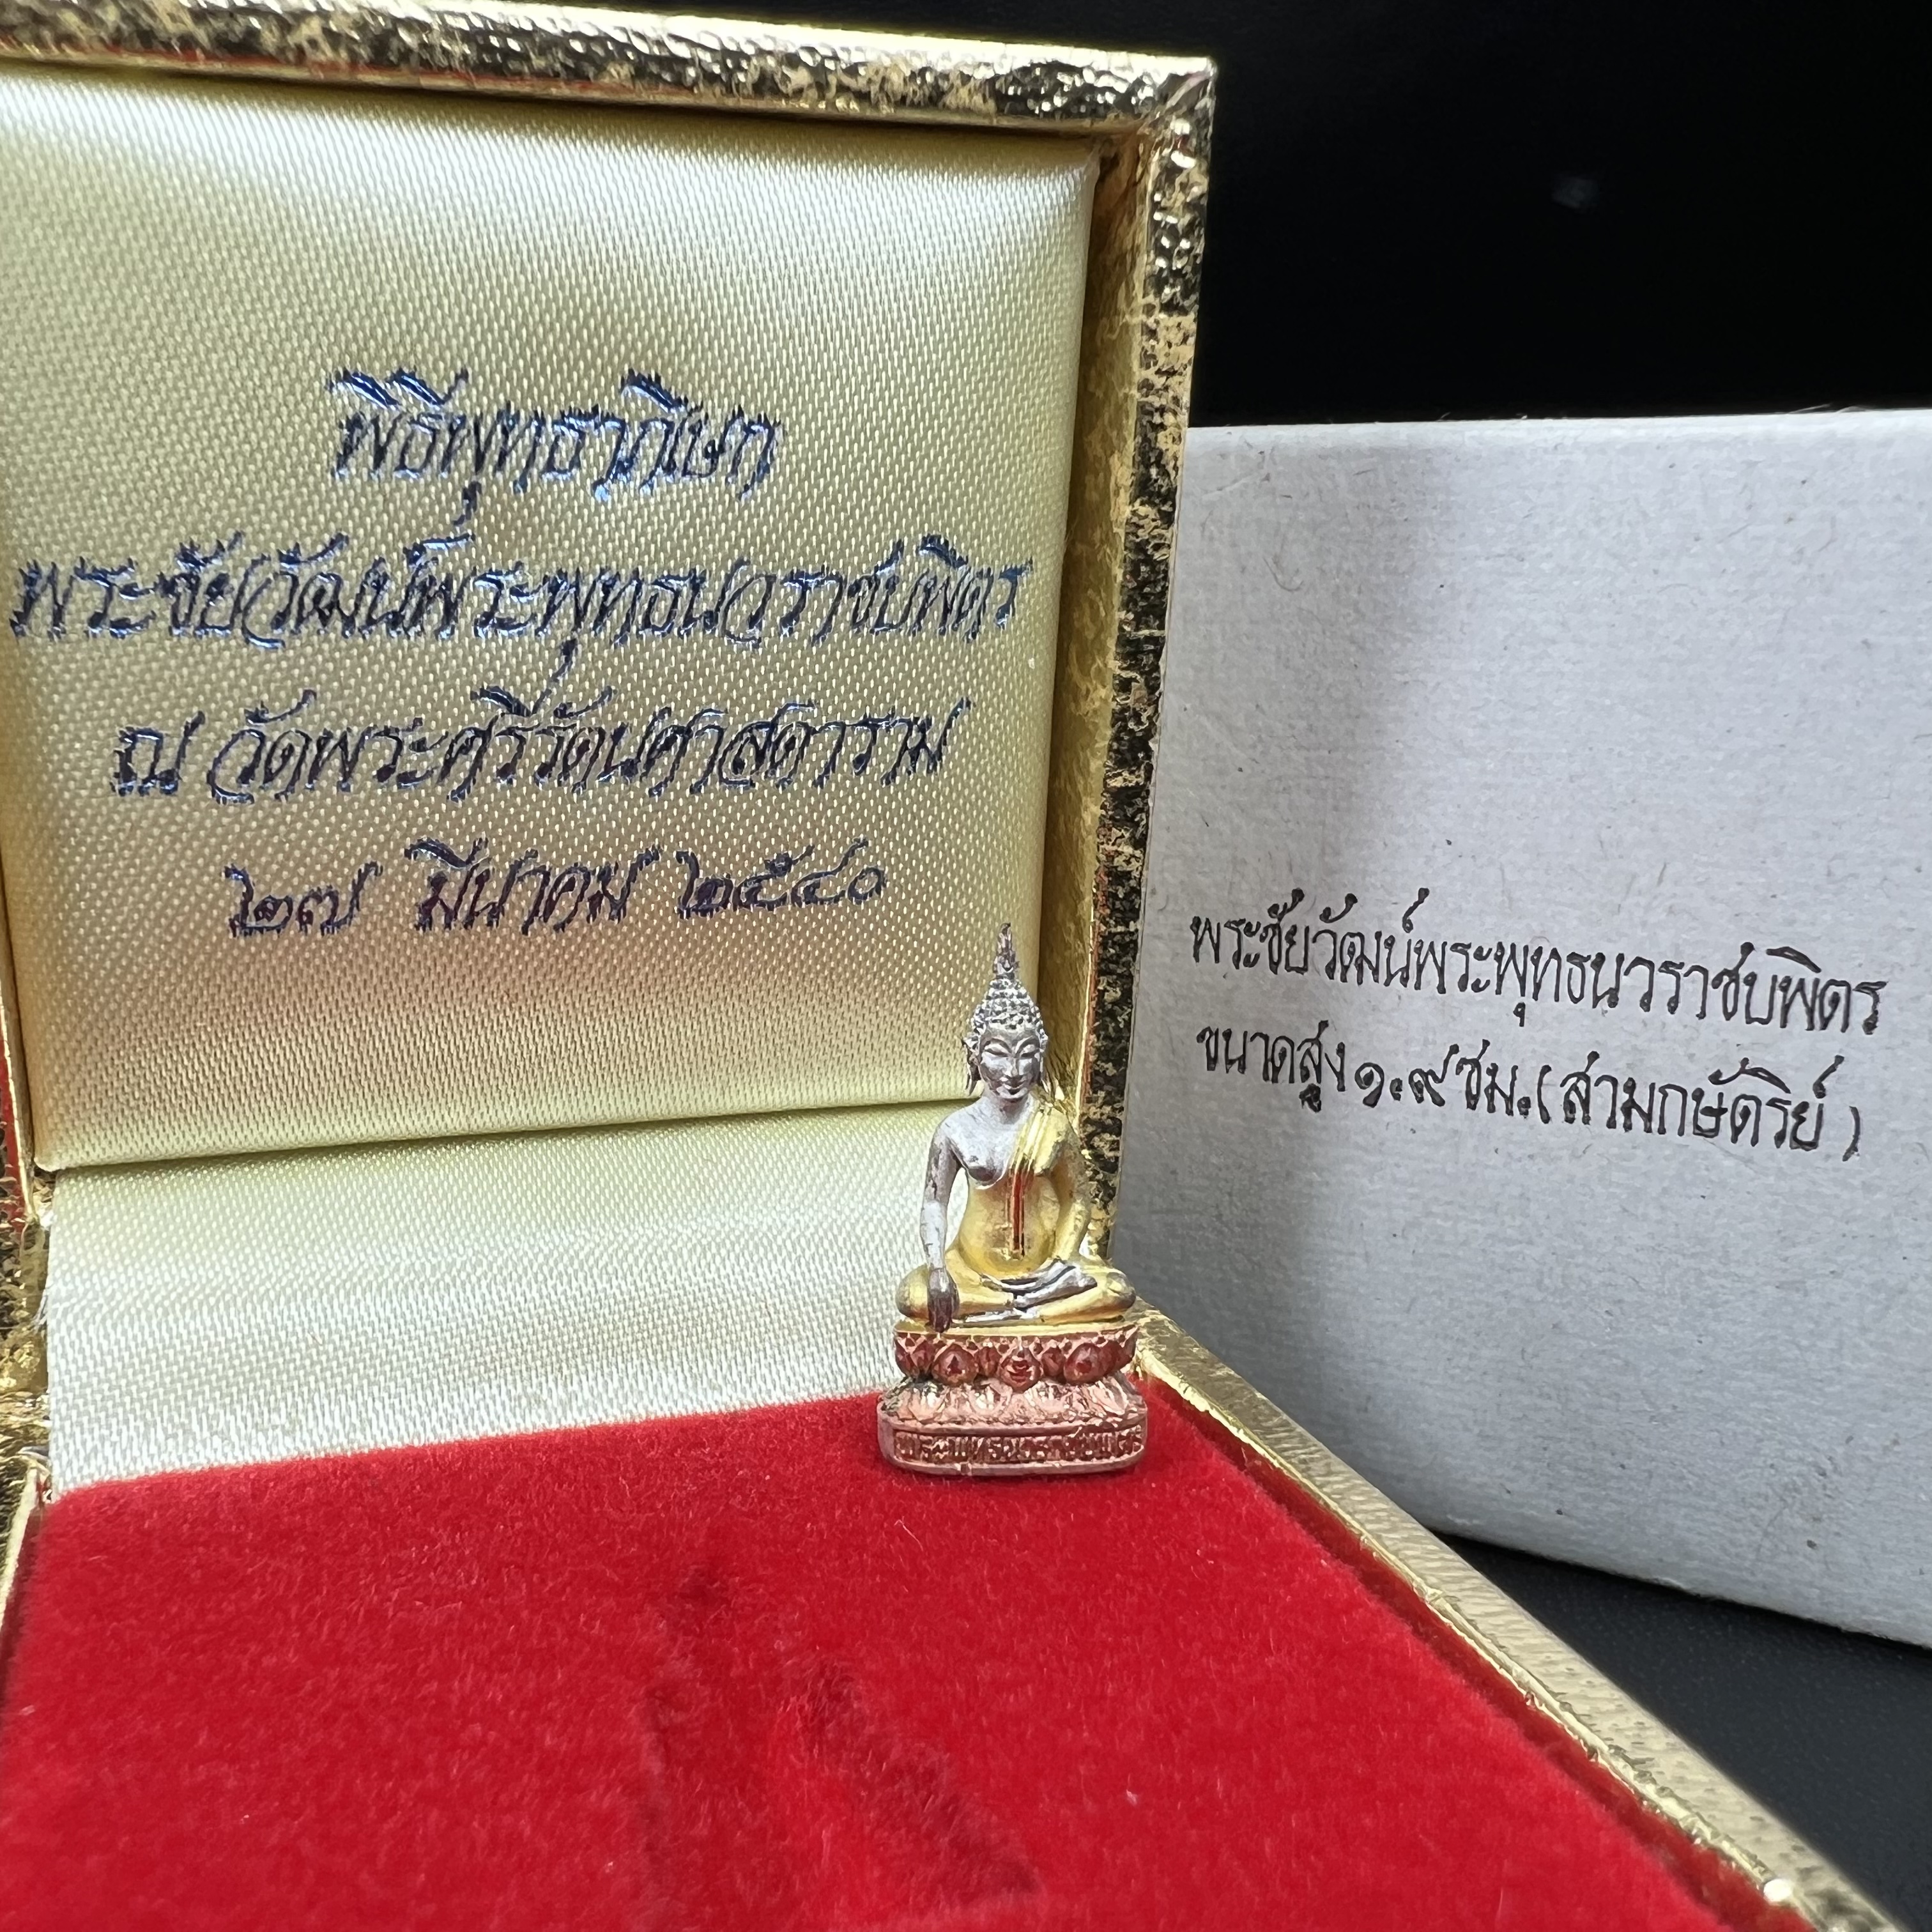 พิธีพุทธาภิเษก
พระชัยวัฒน์พระพุทธนวราชบพิตร
ณ วัดพระศรีรัตนศาสดาราม
๒๗ มีนาคม ๒๕๔๐
พระชัยวัฒน์พระพุทธนวราชบพิตร
ขนาดสูง ๑.๙ ซม. (สามกษัตริย์)
พระพุทธนวราชบพิตร